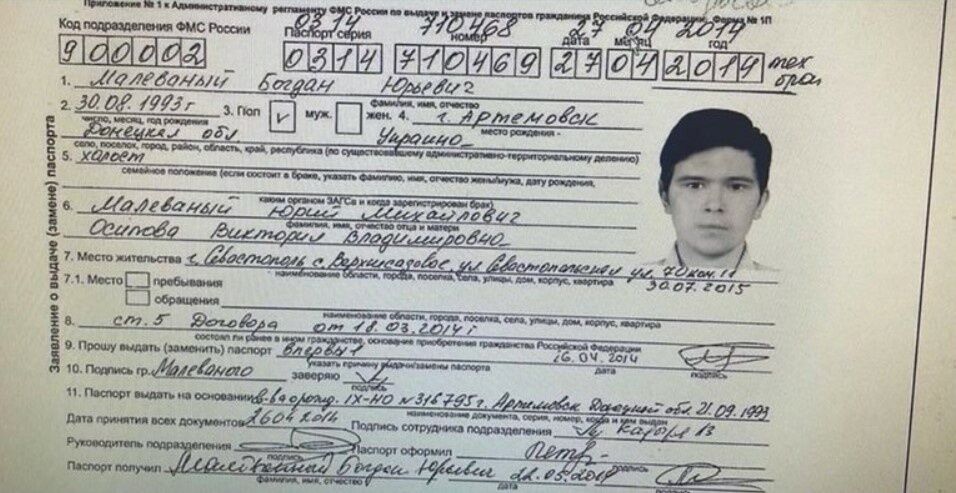 Приложение № 1 к Административному регламенту ФМС России по выдаче и замене паспортов гражданина Российской Федерации. Форма № 1П
0314 710468 27 04 2014
Код подразделения ФМС России Паспорт серия номер дата месяц год
900002 0314 710469 27 04 2014 тех брак
1. Малеваный Богдан Юрьевич
фамилия, имя, отчество
2. 30.08.1993г 3. Пол V муж. жен. 4. г. Артемовск
число, месяц, год рождения место рождения -
Донецкая обл Украина
село, поселок, город, район, область, край, республика (по существовавшему административно-территориальному делению)
5. холост
семейное положение (если состоит в браке, указать фамилию, имя, отчество жены/мужа, дату рождения,
каким органом ЗАГСа и когда зарегистрирован брак)
6. Малеваный Юрий Михайлович
фамилия, имя, отчество отца и матери
Осипова Виктория Владимировна
7. Место жительства г. Севастополь с. Верхнесадовое ул Севастопольская
наименование области, города, поселка, села, улицы, дом, корпус, квартира
30.07.2015
7.1. Место пребывания
обращения
наименование области, города, поселка, села, улицы, дом, корпус, квартира
8. ст. 5 Договора от 18.03.2014г
состоял ли ранее в ином гражданстве, основание приобретения гражданства Российской Федерации
9. Прошу выдать (заменить) паспорт впервые 26.04.2014
указать причину выдачи/замены паспорта дата подпись
10. Подпись гр. Малеваного заверяю
подпись
11. Паспорт выдать на основании св-ва о рожд. IX-НО №316795 г. Артемовск Донецкой обл 21.09.1993
наименование документа, серия, номер, когда и кем выдан
Дата принятия всех документов 26 04 2014 Подпись сотрудника подразделения
подпись
Руководитель подразделения Паспорт оформил
подпись подпись
Паспорт получил Малеваный Богдан Юрьевич 22.05.2014
фамилия, имя, отчество дата подпись
Заявление о выдаче (замене) паспорта